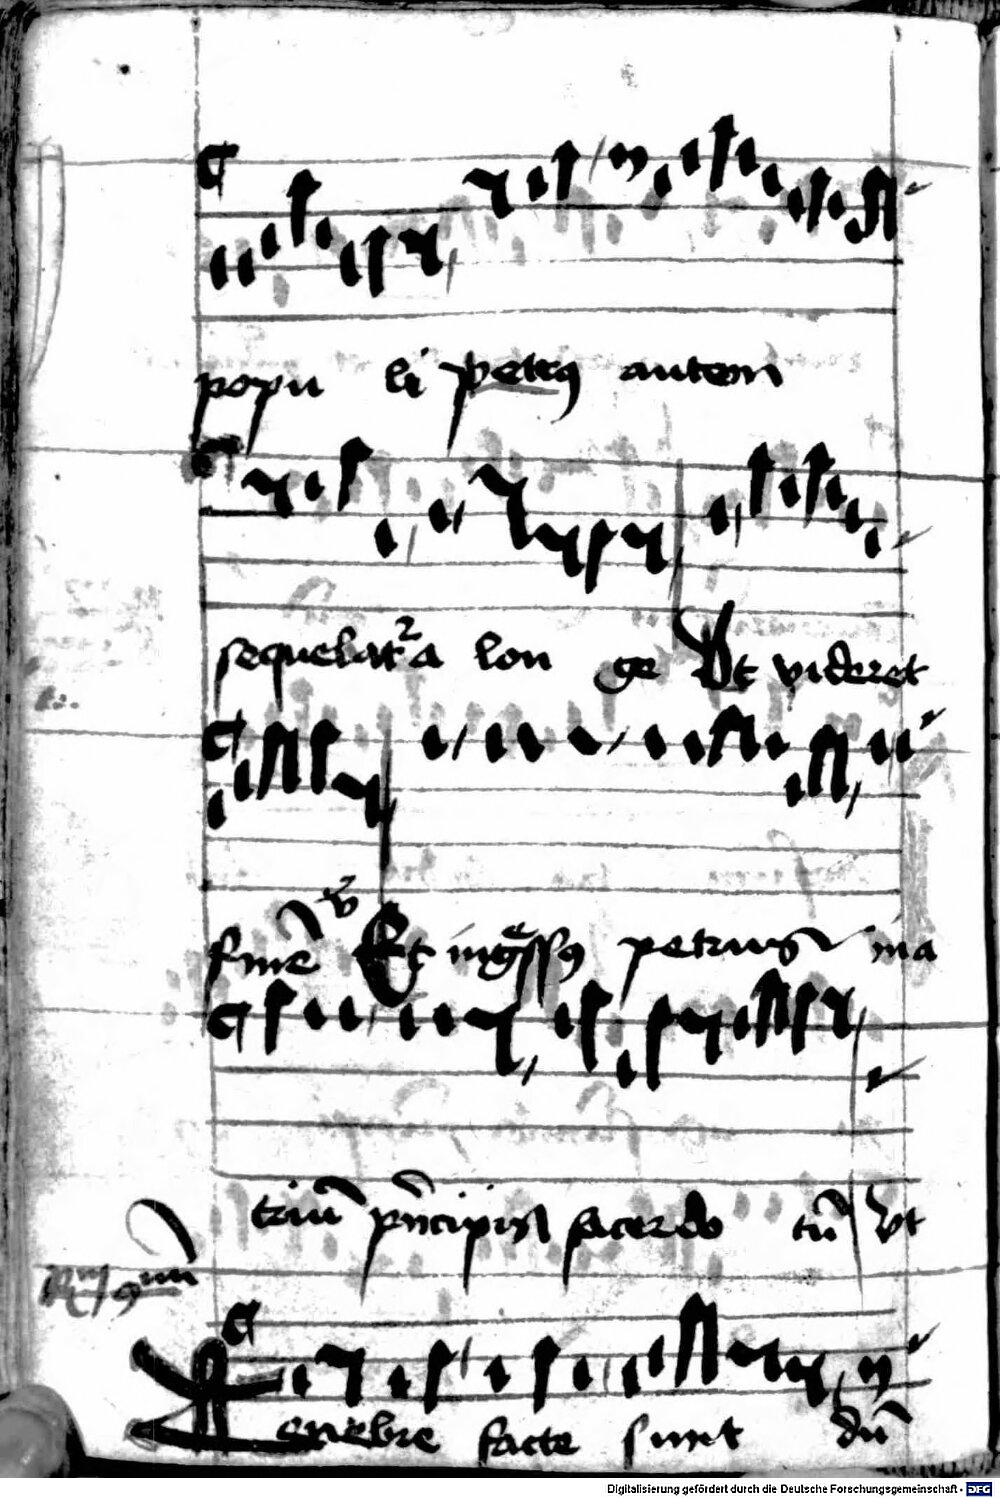 popu li petrꝯ autem
sequebat᷑ a lon ge Ut videret
finē ℣ Et ingͤssꝯ petrus in a
triū p̄ncipis sacerdo tū Ut
Tenebre facte sunt dū
Digitalisierung gefördert durch die Deutsche Forschungsgemeinschaft - DFG